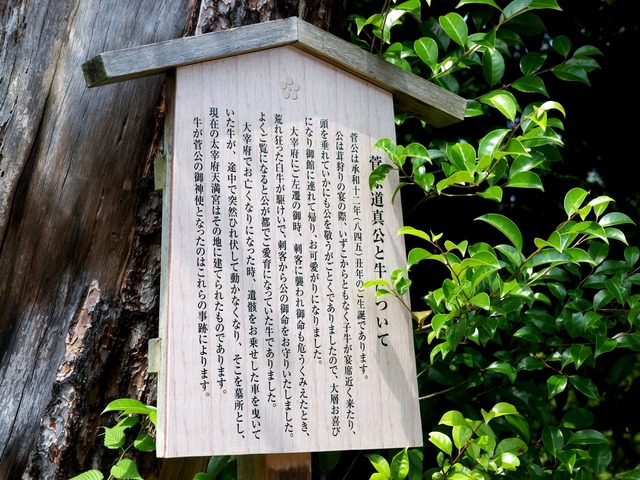 菅原道真公と牛について
菅公は承和十二年（八四五）丑年のご生誕であります。
公は茸狩りの宴の際、いずこからともなく子牛が宴席近く来たり、
頭を垂れていかにも公を敬うがごとくでありましたので、大層お喜び
になり御館に連れて帰り、お可愛がりになりました。
大宰府にご左遷の御時、刺客に襲われ御命も危うくみえたとき、
荒れ狂った白牛が駆けいで、刺客から公の御命をお守りいたしました。
よくご覧になると公が都でご愛育になっていた牛でありました。
大宰府でお亡くなりになった時、遺骸をお乗せした車を曳いて
いた牛が、途中で突然ひれ伏して動かなくなり、そこを墓所とし、
現在の太宰府天満宮はその地に建てられたものであります。
牛が菅公の御神使となったのはこれらの事跡によります。